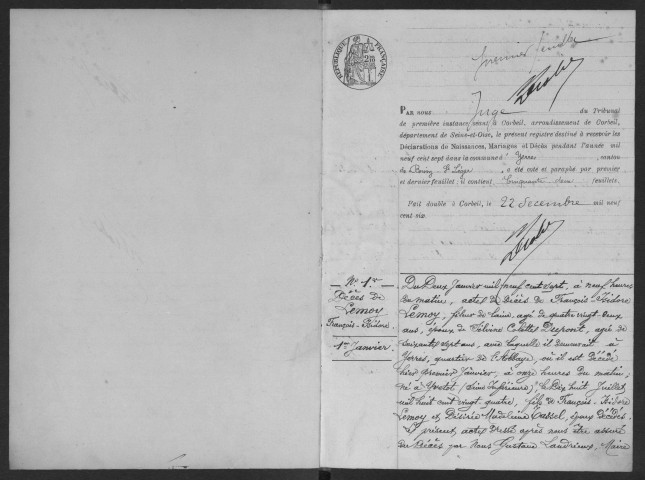 RÉPUBLIQUE FRANÇAISE
Premier feuillet
PAR NOUS Juge du Tribunal
de première instance séant à Corbeil, arrondissement de Corbeil,
département de Seine-et-Oise, le présent registre destiné à recevoir les
Déclarations de Naissances, Mariages et Décès pendant l'année mil
neuf cent sept dans la commune d' Yerres canton
de Boissy St Léger, a été coté et paraphé par premier
et dernier feuillet; il contient Cinquante deux feuillets.
Fait double à Corbeil, le 22 décembre mil neuf
cent six
No 1er
Décès de
Lemoy
François-Isidore
1er Janvier
Du Deux Janvier mil neuf cent sept, à neuf heures
du matin, acte de Décès de François-Isidore
Lemoy, fileur de laine, agé de quatre vingt deux
ans, époux de Céline Colette Duprost, agée de
soixante sept ans, avec laquelle il demeurait à
Yerres, quartier de l'Abbaye, où il est décédé
hier premier Janvier, à onze heures du matin,
né à Yvetot (Seine Inférieure), le Dix huit Juillet
mil huit cent vingt quatre, fils de François-Isidore
Lemoy et Désirée Madeleine Cassel, époux décédés.
Le présent acte dressé après nous être assuré
du Décès par Nous Gustave Landrieux, Maire